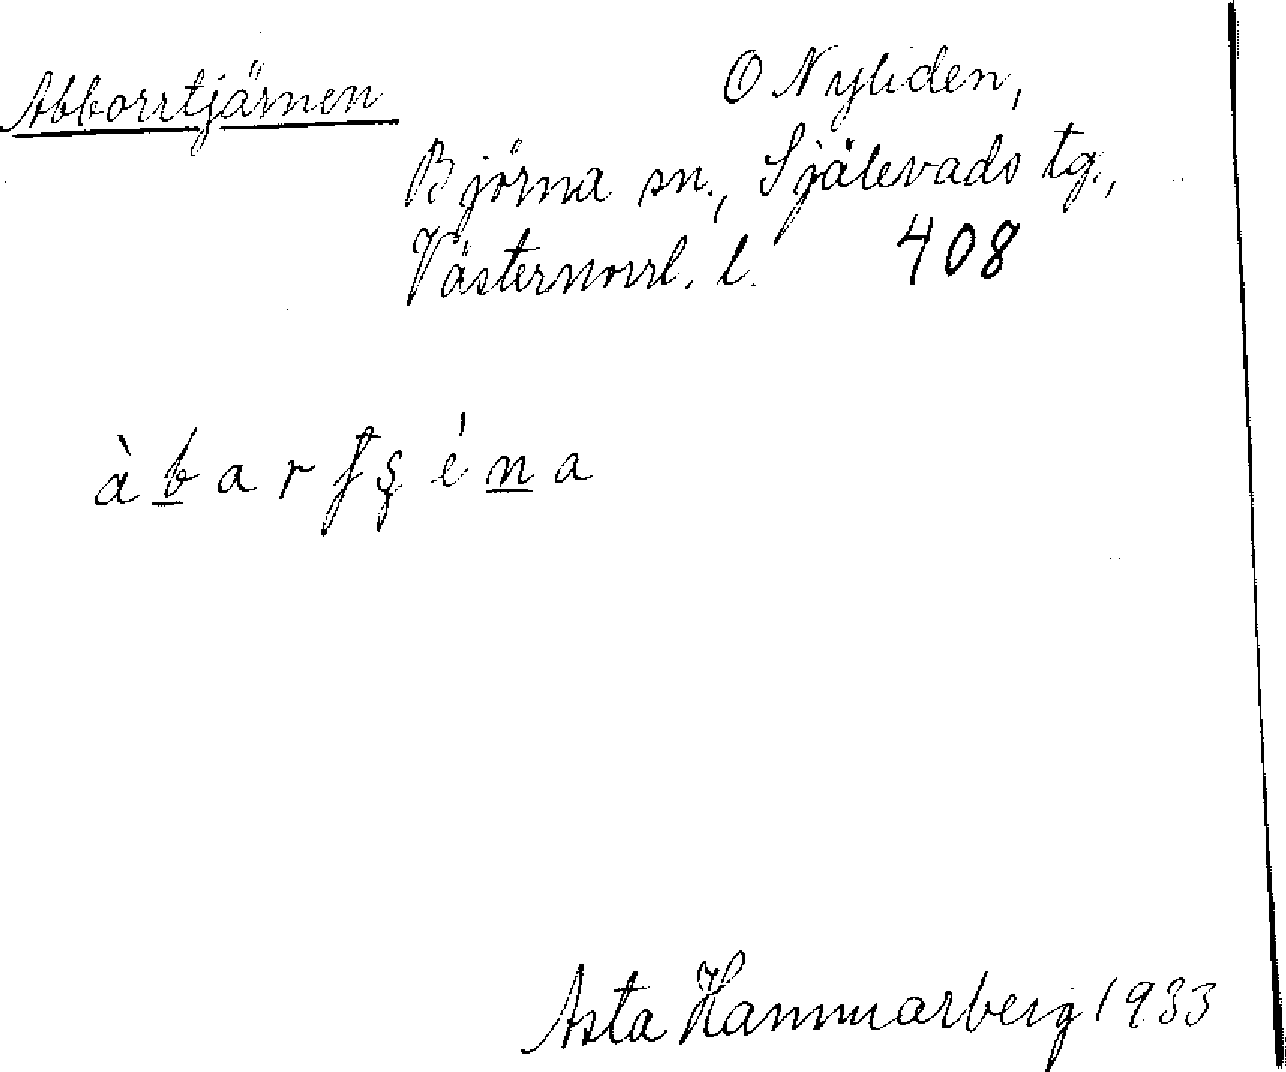 Abborrtjärnen
O Nyliden,
Björna sn., Själevads tg.,
Västernorrl. l. 408
à b a r ʄ ȿ é n a
Asta Hammarberg 1933